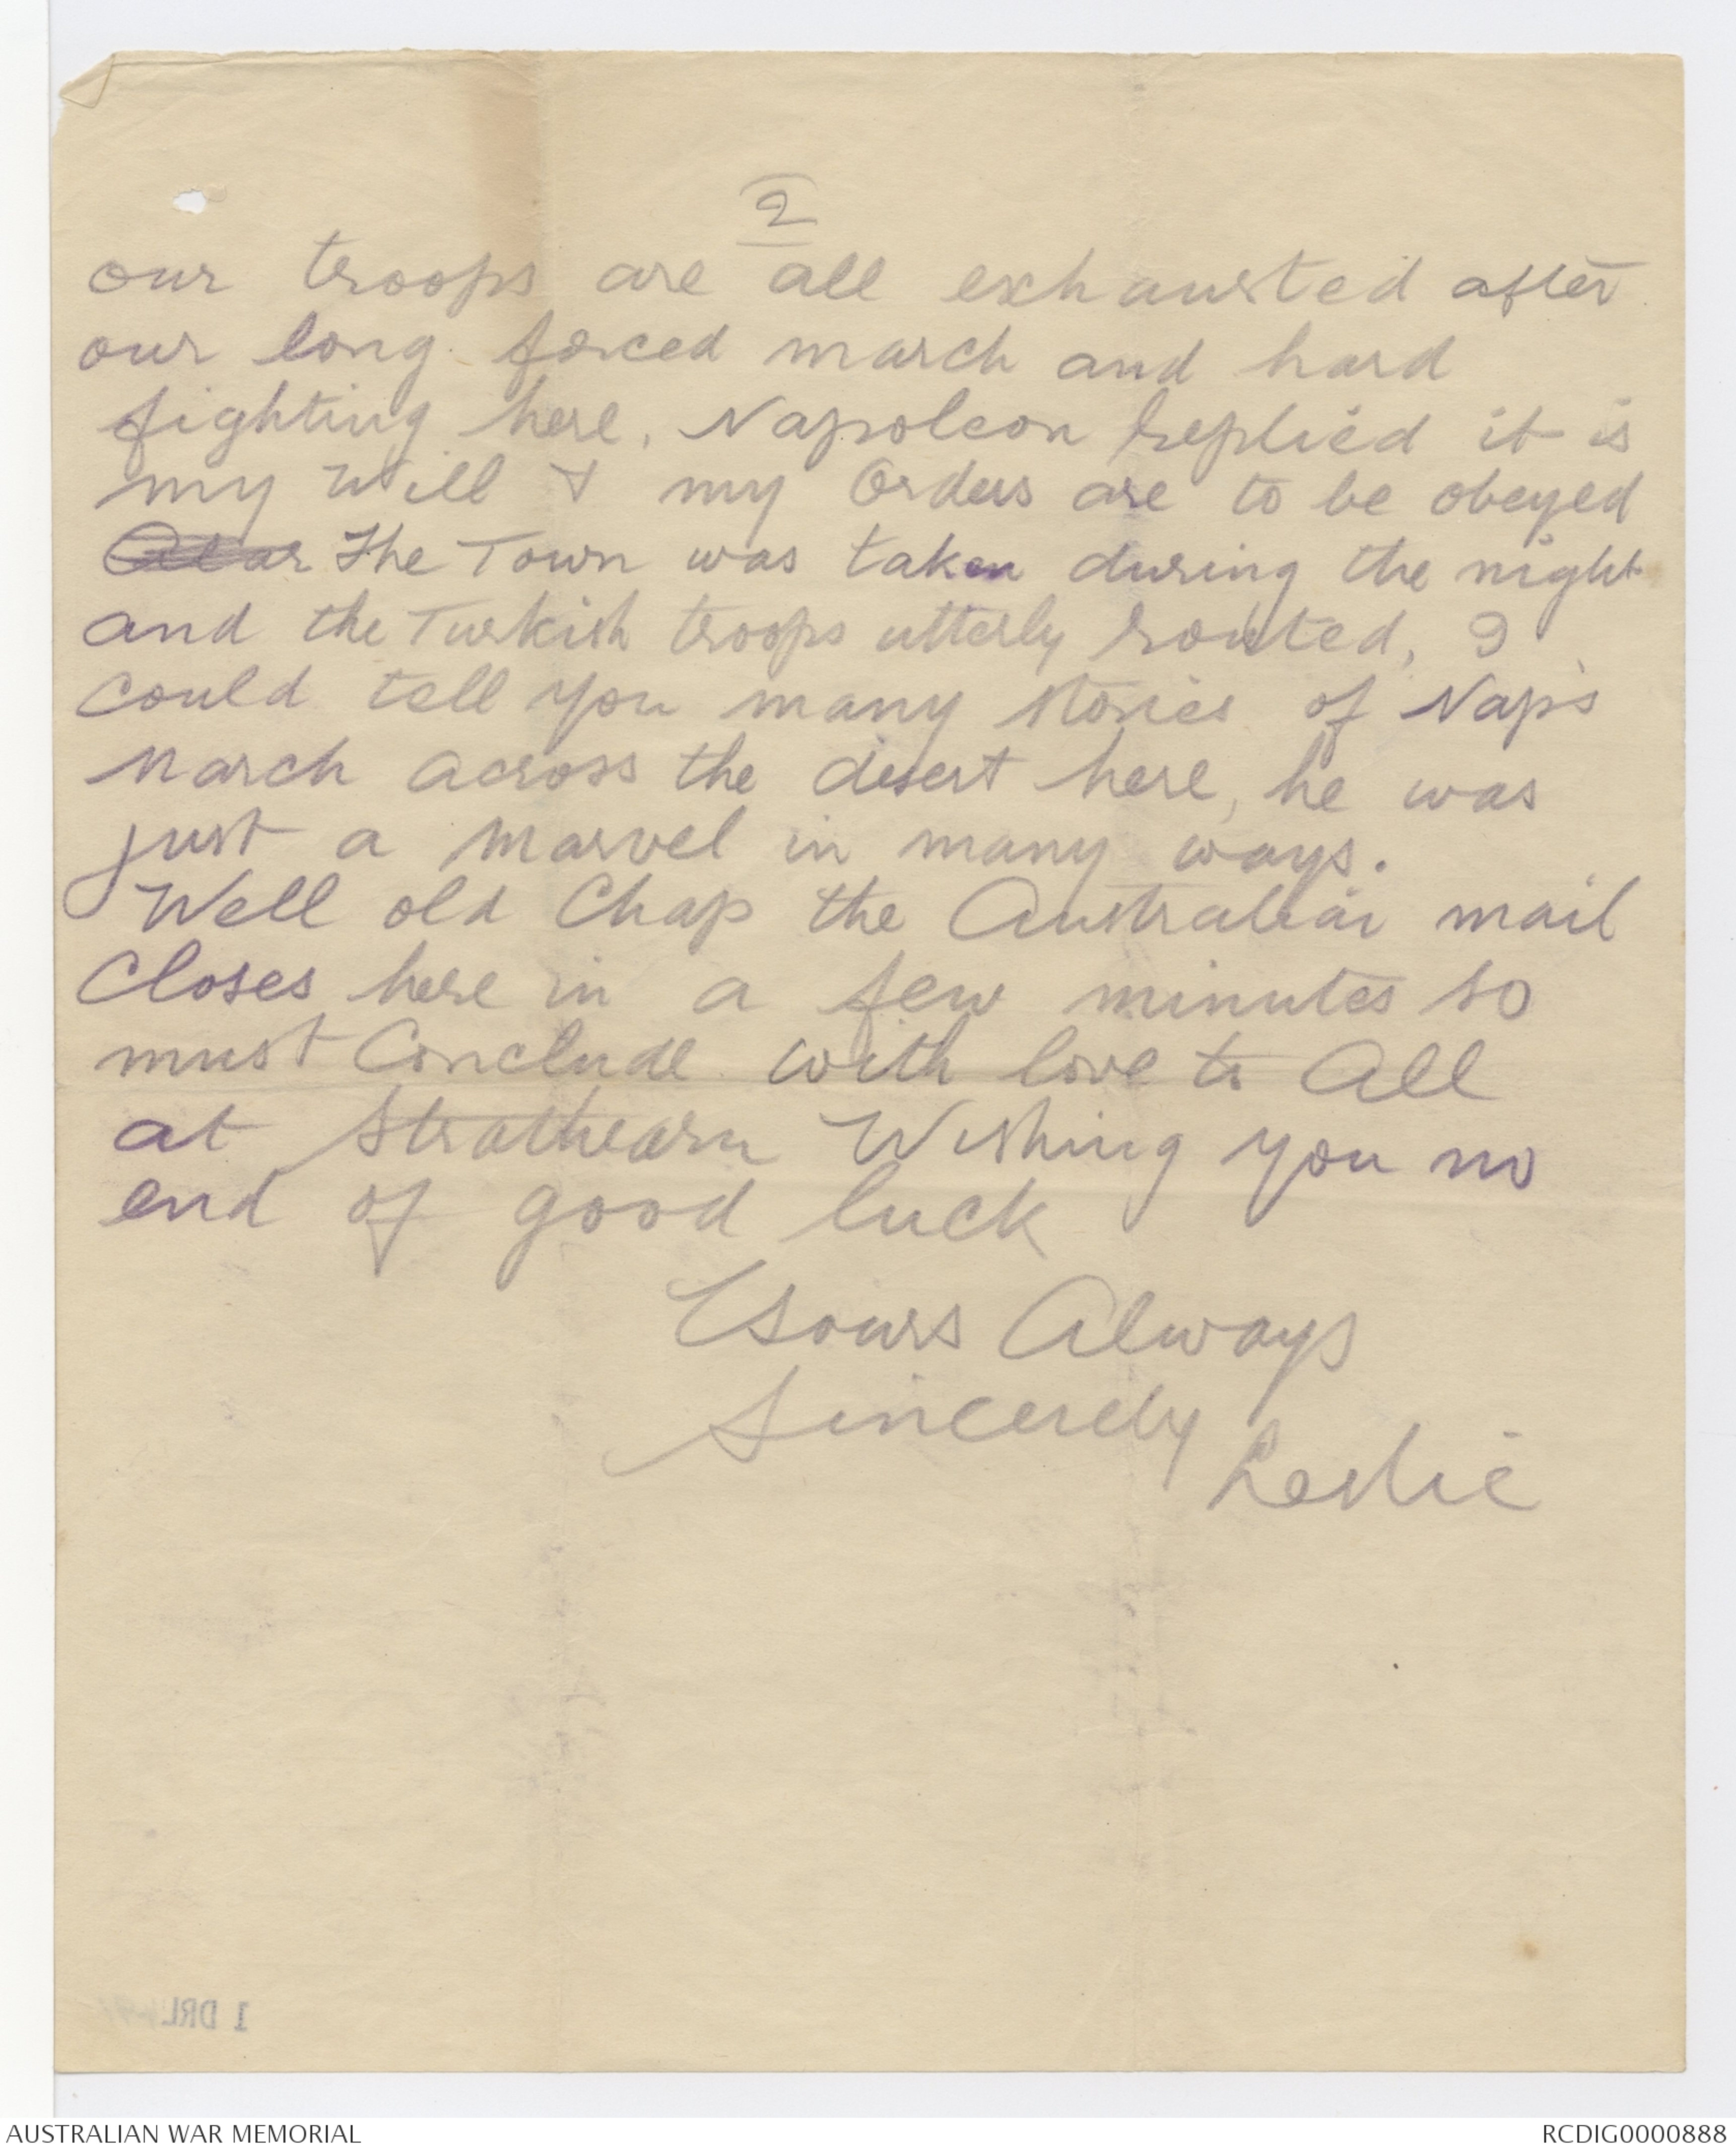 2
our troops are all exhausted after
our long forced march and hard
fighting here, Napoleon replied it is
my Will & my Orders are to be obeyed
The Town was taken during the night
and the Turkish troops utterly routed, I
could tell you many stories of Nap's
March across the desert here, he was
just a Marvel in many ways.
Well old Chap the Australian mail
Closes here in a few minutes so
must Conclude with love to All
at Strathearn Wishing you no
end of good luck
Yours Always
Sincerely
Leslie
1 DRL
AUSTRALIAN WAR MEMORIAL
RCDIG0000888